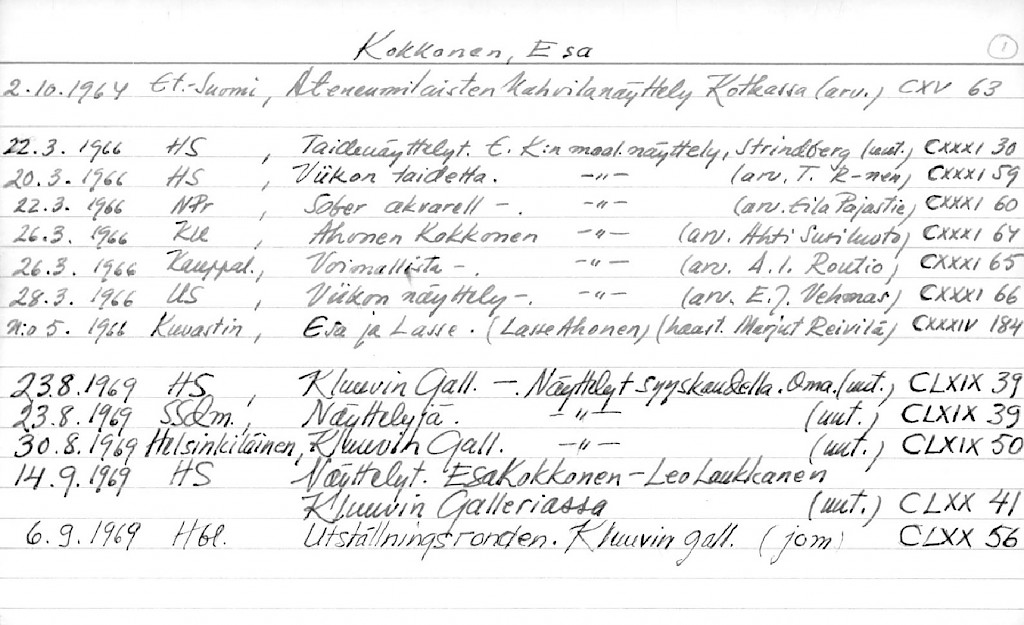 Kokkonen, Esa 1
2.10.1964 Et.-Suomi, Ateneumilaisten kahvilanäyttely Kotkassa (arv.) CXV 63
22.3. 1966 HS, Taidenäyttelyt. E. K:n maal. näyttely, Strindberg (uut.) CXXXI 30
20.3. 1966 HS, Viikon taidetta. -"- (arv. T. K-nen) CXXXI 59
22.3. 1966 NPr, Sober akvarell -. -"- (arv. Eila Pajastie) CXXXI 60
26.3. 1966 KU, Ahonen Kokkonen -"- (arv. Ahti Susiluoto) CXXXI 64
26.3. 1966 Kauppal., Voimallista -. -"- (arv. A.I. Routio, CXXXI 65
28.3. 1966 US, Viikon näyttely -. -"- (arv. E.J. Vehmas) CXXXI 66
N:o 5. 1966 Kuvastin, Esa ja Lasse. (Lasse Ahonen) (haast. Marjut Reivilä) CXXXIV 184
23.8.1969 HS, Kluuvin Gall. - Näyttelyt syyskaudella. Oma. (uut.) CLXIX 39
23.8.1969 SSdm., Näyttelyjä. -"- (uut.) CLXIX 39
30.8.1969 Helsinkiläinen, Kluuvin Gall. -"- (uut.) CLXIX 50
14.9.1969 HS Näyttelyt. Esa Kokkonen - Leo Laukkanen
Kluuvin Galleriassa (uut.) CLXX 41
6.9.1969 Hbl. Utställningsronden. Kluuvin gall. (jom) CLXX 56